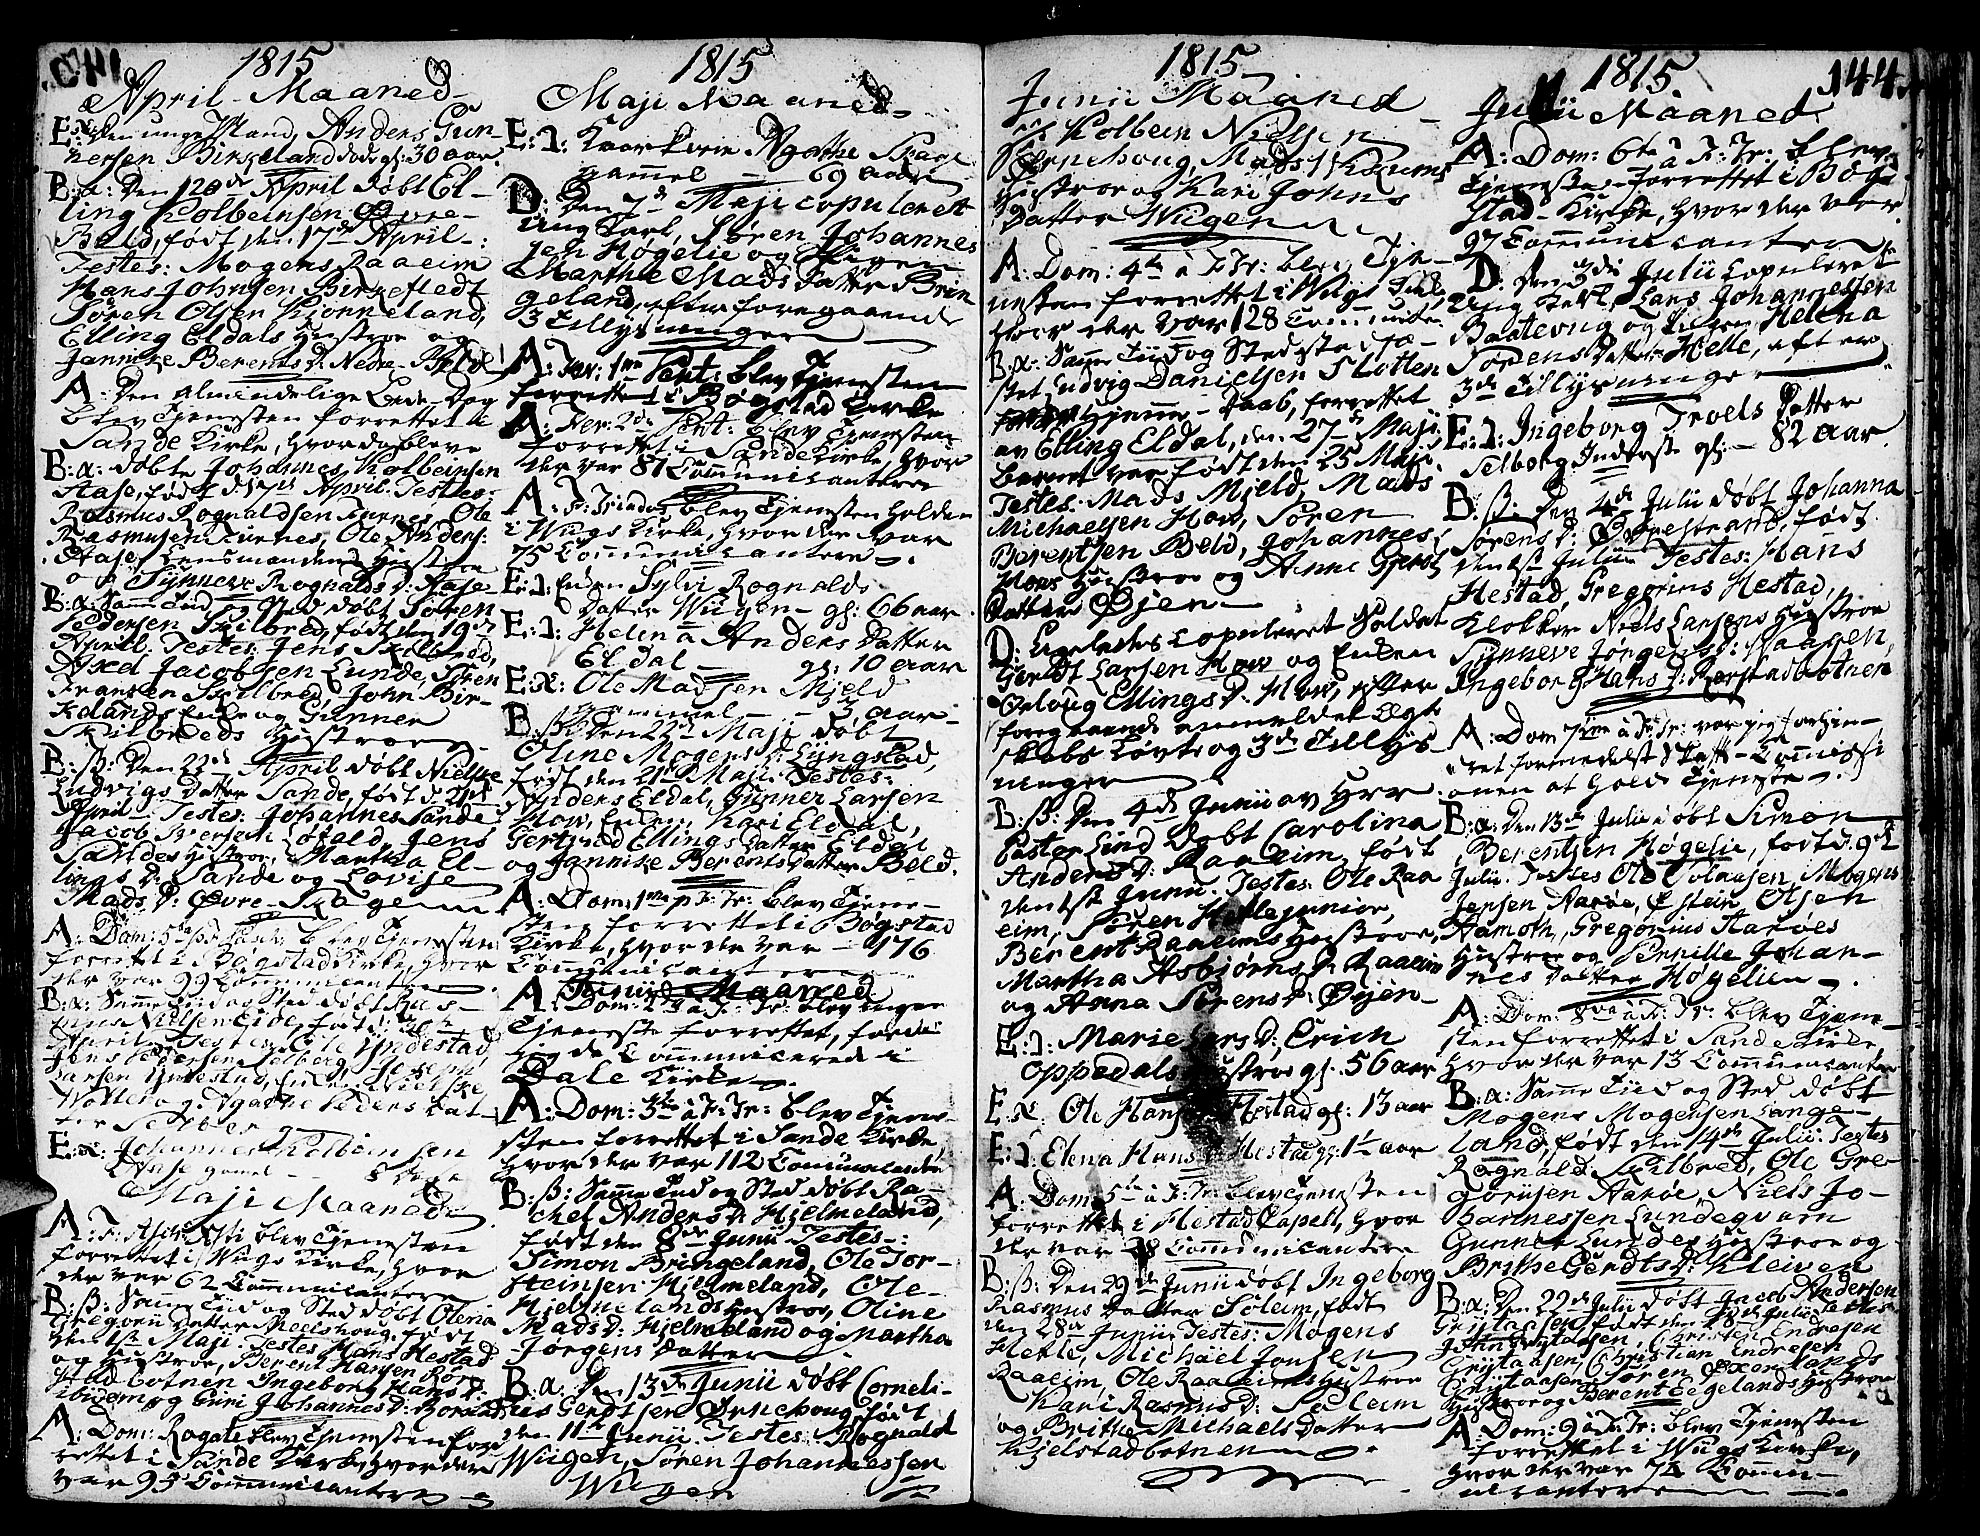 1815
April - Maaned
E: α: Den unge Mand, Anders Gun-
nersen Birkeland dode gl: 30 aar.
B: α: Den 20de April døbt El-
ling Kolbeinsen Øvre-
Beld, født den 17de April:
Testes: Mogens Raaeim
Hans Johnsen Birkestedt
Søren Olsen Kionneland,
Elling Eldals Hustroe og
Janniche Berents D: Nedre-Beld
A: Den almindelige Bede-Dag
blev Tjenesten forrettet i
Sande Kirke, hvor da bleve
B: α: døbte Johannes Kolbeinsen
Aase, født d: 17de April. Testes:
Rasmus Rognaldsen Turnes, Ole
Rasmusen Turnes, Ole Anders:
Aase, Lensmandens Hustroe
og Synneve Rognalds D: Aase
B: α: Samme Tiid og Sted døbt Søren
Pedersen Skilbred, født den 19de
April. Testes: Jens Skilbred,
Axel Jacobsen Lunde, Søren
Fransen Skilbred, John Bir-
kelands Enke og Gunner
Skilbreds Hustroe
B: β: Den 22de April døbt Nielske
Ludvigs Datter Sande, født d: 21de
April. Testes: Johannes Sande
Jacob Iversen Løfald, Jens
Sandes Hustroe, Martha El-
lings D: Sande og Lovise
Mads D: Øvre-Skagen
A: Dom: 5ta p: blev Tjenesten
forrettet i Bøgstad Kirke, hvor
der var 99 Communicantere
B: α: Samme Tiid og Sted døbt Ras-
mus Nielsen Eide, født d:
April. Testes: Ole Yndestad,
Jens Pedersen Selberg, Joseph
Larsen Yndestad,
og Agathe Peders Dat-
ter Selberg
E: α: Johannes Kolbeinsen
Aase gamel - 8 Dage
Maji Maaned
A: F: Ascensti blev Tjenesten
forrettet i Wiigs Kirke, hvor
der var 62 Communicantere
B: β: Samme Tiid og Sted døbt Olena
Gregorii Datter født
den 1ste Maji. Testes Hans Hestad
og Hustroe, Berent Hansen Rør-
stadbotnen Ingeborg Hans D:
ibidem og Guri Johannes D:
A: Dom: Rogate blev Tjenesten for-
rettet i Sande Kirke, hvor der
var 95 Communicantere
1815
Maji Maaned
E: ɿ: Kaarkone Agathe Skage
gammel - 69 aar
D: Den 7de Maji copuleret
Ung Karl, Søren Johannes
sen Høgelie og Pigen
Marthe Mads Datter Brin
geland, efter foregaaende
3 Tillysninger
A: Fer: 1ma Pent: blev Tjenesten
forrettet i Bøgstad Kirke
A: Fer: 2da Pent: blev Tjenesten
forrettet i Sande Kirke, hvor
der var 87 Communicantere
A: F: Trinit: blev Tjenesten holden
i Wiigs Kirke, hvor der var
75 Communicantere
E: ɿ: Enken Sylvi Rognalds
Datter Wiigen - gl: 66 aar
E: ɿ: Helena Anders Datter
Eldal - gl: 10 aar
E: α: Ole Madsen Mjeld
gammel - 3 aar
B: β: Den 22de Maji døbt
Oline Mogens D: Lyngstad,
født den 21de Maji. Testes:
Anders Eldal, Gunner Larsen
How, Enken, Kari Eldal,
Gertrud Ellings Datter Eldal
og Jannike Berents Datter Beld.
A: Dom: 1ma p: F: Tr: blev Tjene-
sten forrettet i Bøgstad
Kirke, hvor der var - 176
Communicantere
Junii Maaned
A: Dom: 2da a F: Tr: blev ingen
Tjeneste forrettet, fordi
jeg da Communicerede i
Dale Kirke
A: Dom: 3tia a F: Tr: blev Tjene-
sten forrettet i Sande Kirke,
hvor der var 112 Communicantere
B: β: Samme Tiid og Sted døbt Ra-
chel Anders D: Hjelmeland,
født den 8de Junii Testes:
Simon Bringeland, Ole Tor-
steinsen Hjelmeland, Ole
Hjelmelands Hustroe, Oline
Mads D: Hjelmeland og Martha
Jörgens Datter
B: α: Den 13de Junii døbt Corneli-
us Gerdtsen Ørnehoug, født
den 11te Junii. Testes: Rognald
Wiigen, Søren Johannessen
Wiigen
1815
Junii Maaned
Kolbein Nielsen
Ørnehoug, Mads
Hustroe og Kari Johns
Datter Wiigen
A: Dom: 4ta a F: Tr: blev Tje-
nesten forrettet i Wiigs Kirke
hvor der var 128 Communic
B: α: Samme Tiid og Sted stadfæ-
stet Ludvig Danielsen Slotten
Hjemme-Daab, forrettet
av Elling Eldal, den 27de Maji.
Barnet var født den 25 Maji.
Testes: Mads Mjeld, Mads
Michaelsen How, Søren
Berentsen Beld, Johannes
Hows Hustroe og Anne Gjerts
Datter Øjen
D: Ligeledes copuleret Soldat
Gerdt Larsen How og Enken
Orloug Ellings D: How, efter
foregaaende anmeldet Ægte-
skabs Løvte og 3de Tillys-
ninger
B: β: Den 4de Junii av Hrr
Pastor Lind døbt Carolina
Anders D: Raaeim, født
den 1ste Junii. Testes: Ole Raa
eim, Søren Hetle junior,
Berent Raaeims Hustroe,
Martha Asbjørns D: Raaeim
og Anna Sørens D: Øyen
E: ɿ: Marie Lars D: Erich
Oppedals Hustroe gl: 56 aar
E: α: Ole Hansen Hestad gl: 13 aar
E: ɿ: Elena Hans D: Hestad gl: 1½ aar
A: Dom: 5ta a F: Tr: blev Tjenesten
forrettet i Hestad Capel, hvor
der var 28 Communicantere
B: β: Den 29de Junii døbt Ingeborg
Rasmus Datter Soleim, født
den 28de Junii. Testes: Mogens
Hetle, Michael Jonsen
Raaeim, Ole Raaeims Hustroe
Kari Rasmus D: Soleim
og Brithe Michaels Datter
Kjelstadbotnen
1815.
144
Julii Maaned
A: Dom: 6ta a F: Tr: blev
Tjenesten forrettet i Bøg-
stad-Kirke, hvor der var
97 Communicantere
D: Den 3die Julii copuleret
Ung Karl Lars Johannessen
Baatevug og Pigen Helena
Sørens Datter Helle, efter
3de Tillysninger
E: ɿ: Ingeborg Troels Datter
Selborg Inderste gl: - 82 aar.
B: β: Den 4de Julii døbt Johanna
Sørens D: Øvrestrand, født
den 1ste Julii. Testes: Hans
Hestad, Gregorius Hestad,
Klokker Niels Larsens Hustroe
Synneve Jørgens D: Haagen,
Ingeborg Hans D: Rørstadbotnen
A: Dom 7ma a F: Tr: var jeg forhin-
dret formedelst Skatt-Commissi
onen at holde Tjeneste.
B: α: Den 13de Julii døbt Simon
Berentsen Høgelie, født d. 9de
Julii. Testes Ole Tolaasen, Mogens
Jensen Aarøe, Østein Olsen
Hamoth, Gregorius Aarøes
Hustroe og Pernille Johan-
nes Datter Høgelien.
A: Dom: 8va a F: Tr: blev Tjene-
sten forrettet i Sande Kirke,
hvor der var 13 Communicantere
B: α: Samme Tiid og Sted døbt
Mogens Mogensen Lange-
land, født den 14de Julii. Testes
Rognald Skilbred, Ole Gre-
gorijsen Aarøe, Niels Jo-
hannessen Lundeqvam
Gunner Lundes Hustroe og
Brithe Gerdts D: Kleiven
B: α: Den 22de Julii døbt Jacob Andersen
Grytaasen, født den 18de Julii. Testes
John Grytaasen, Christen Endresen
Grytaasen, Christian Endresen
Grytaasen, Søren
Hustroe og Berent Egelands Hustroe
A: Dom: 9 a F: Tr: blev Tjenesten
forrettet i Wiigs Kirke,
hvor der var 74 Commu-
nicantere